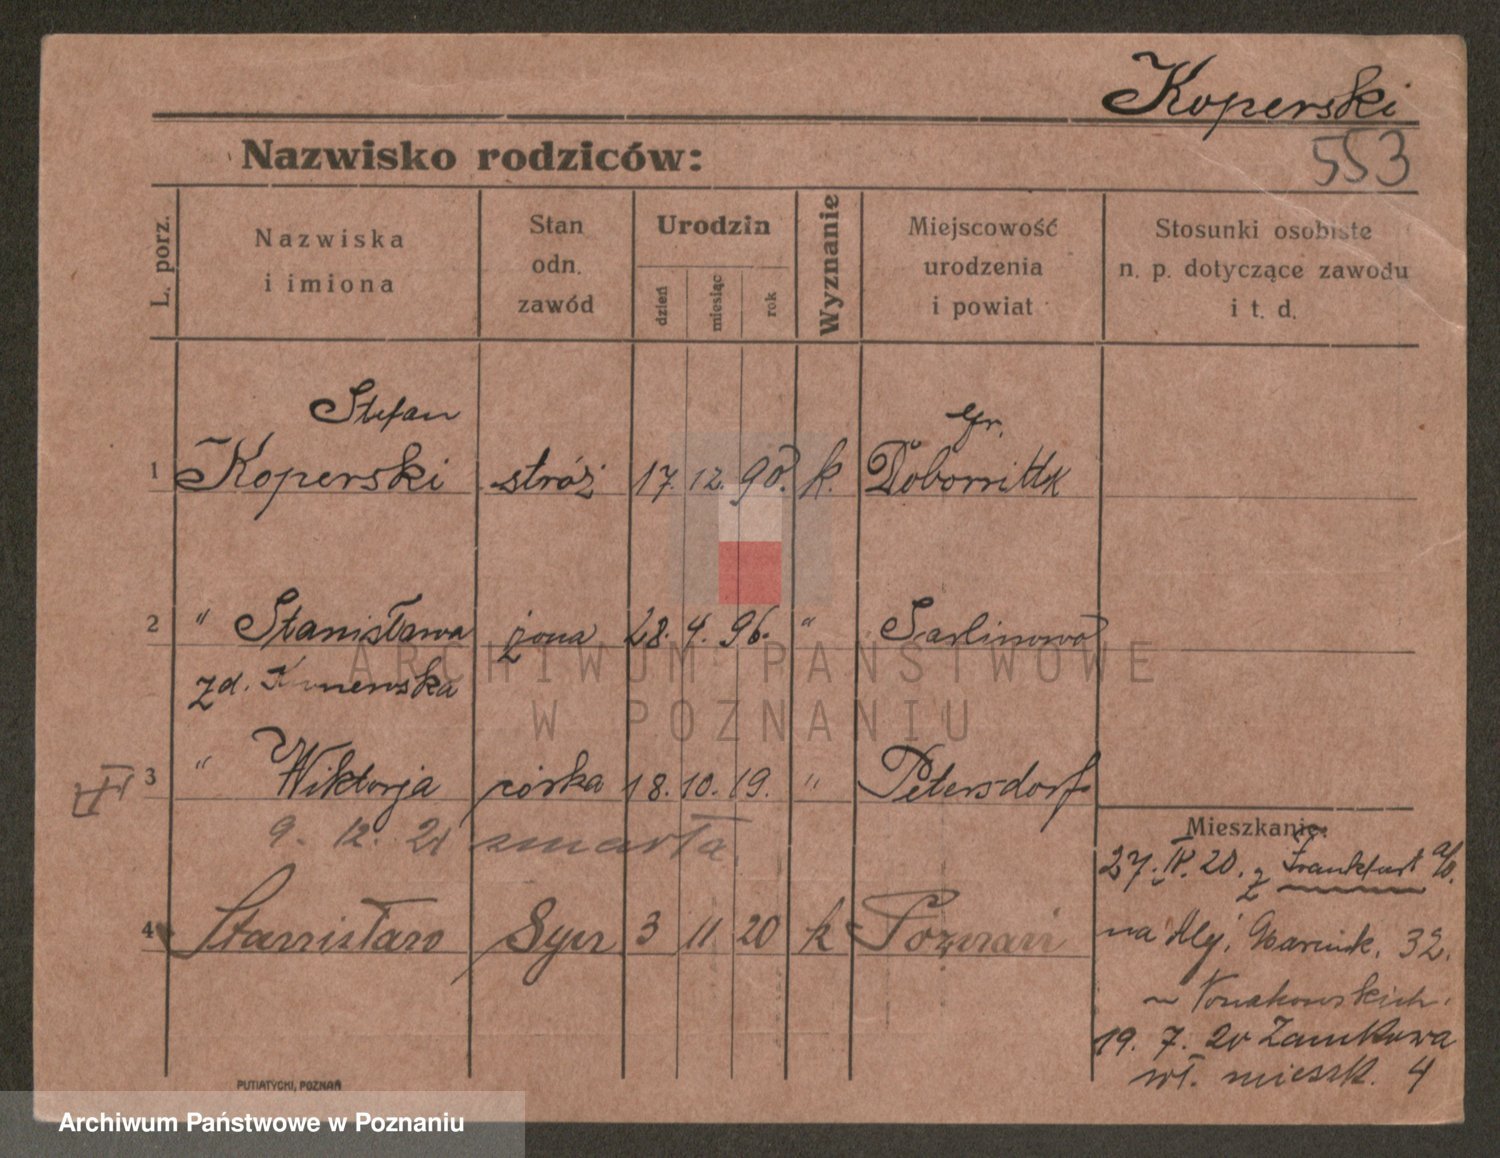 Koperski
553
Nazwisko rodziców:
L. porz.
Nazwiska
i imiona
Stan
odn.
zawód
Urodzin
dzień
miesiąc
rok
Wyznanie
Miejscowość
urodzenia
i powiat
Stosunki osobiste
n. p. dotyczące zawodu
i t. d.
Stefan
gr.
1 Koperski stróż 17. 12. 90. k.
2 " Stanisława żona 28. 4. 96. " Sarlinowo
zd.
3 " Wiktorja córka 18. 10. 19. " Petersdorf
9. 12. 21 zmarła.
4 Stanisław Syn 3 11 20 k Poznań
Mieszkanie:
27. IV. 20. z Frankfurt a/O.
na Alej. Marcink. 32.
19. 7. 20 Zamkowa
wł. mieszk. 4
PUTIATYCKI, POZNAŃ
ARCHIWUM PAŃSTWOWE
W POZNANIU
Archiwum Państwowe w Poznaniu